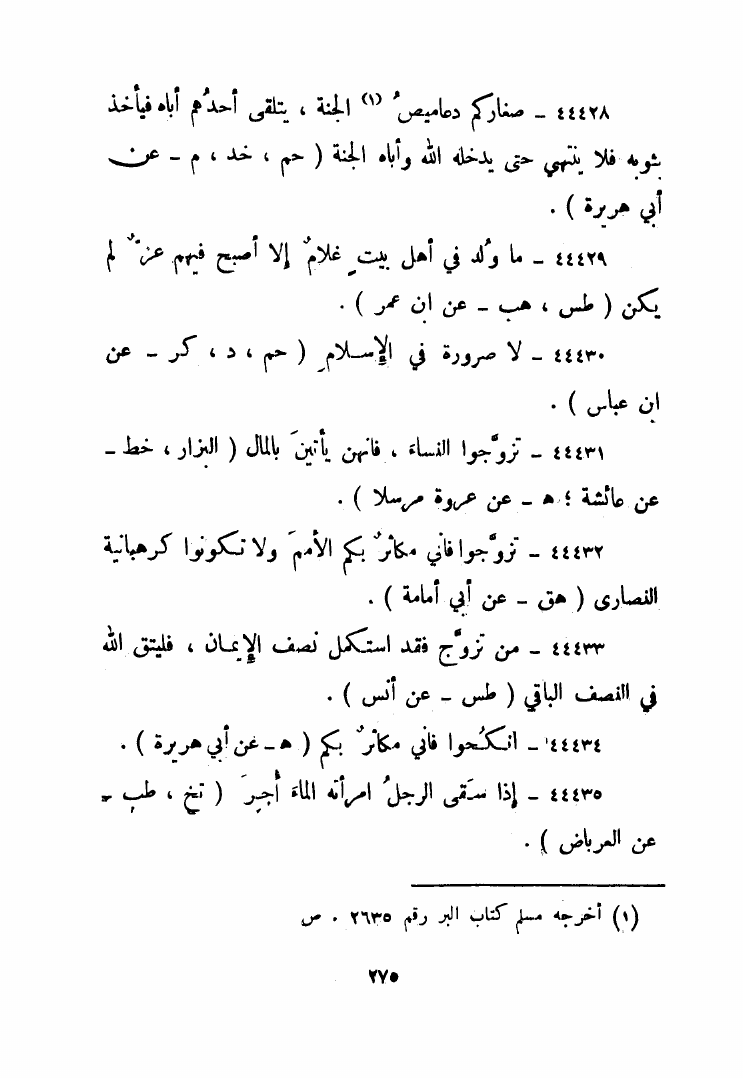 ٤٤٤٢٨ ـ صغاركم دعاميصُ (١) الجنة ، يتلقى أحدُهم أباه فيأخذ
بثوبه فلا ينتهي حتى يدخله الله وأباه الجنة ( حم ، خد ، م ـ عن
أبي هريرة ) .
٤٤٤٢٩ ـ ما وُلد في أهل بيتٍ غلامٌ إلا أصبح فيهم عزٌّ لم
يكن ( طس ، هب ـ عن ابن عمر ) .
٤٤٤٣٠ ـ لا صرورة في الإسلامِ ( حم ، د ، كر ـ عن
ابن عباس ) .
٤٤٤٣١ ـ تزوَّجوا النساءَ ، فانهن يأتينَ بالمال ( البزار ، خط ـ
عن عائشة ؛ ه ـ عن عروة مرسلا ) .
٤٤٤٣٢ ـ تزوَّجوا فاني مكاثرٌ بكم الأممَ ولا تكونوا كرهبانية
النصارى ( هق ـ عن أبي أمامة ) .
٤٤٤٣٣ ـ من تزوَّج فقد استكمل نصف الإيمان ، فليتق الله
في النصف الباقي ( طس ـ عن أنس ) .
٤٤٤٣٤ ـ انكحُوا فاني مكاثرٌ بكم ( ه ـ عن أبي هريرة ) .
٤٤٤٣٥ ـ إذا سقَى الرجلُ امرأته الماءَ أُجِرَ ( تخ ، طب ـ
عن العرباض ) .
(١) أخرجه مسلم كتاب البر رقم ٢٦٣٥ . ص
٢٧٥